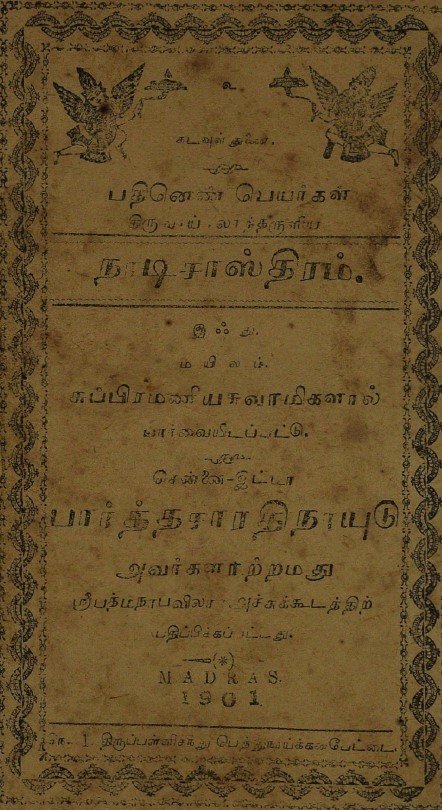 உ
கடவுள் துணை.
பதினெண் பெயர்கள்
திருவாய் லார்ந்தருளிய
நாடிசாஸ்திரம்.
இஃது.
மயிலம்.
சுப்பிரமணியசுவாமிகளால்
பார்வையிடப்பட்டு.
சென்னை-இட்டா
பார்த்தசாரதிநாயுடு
அவர்களாற்றமது
ஸ்ரீபத்மநாபவிலாச அச்சுக்கூடத்திற்
பதிப்பிக்கப்பட்டது.
MADRAS.
1901.
1. திருப்பள்ளிசந்து பெத்துநாய்க்கன்பேட்டை.